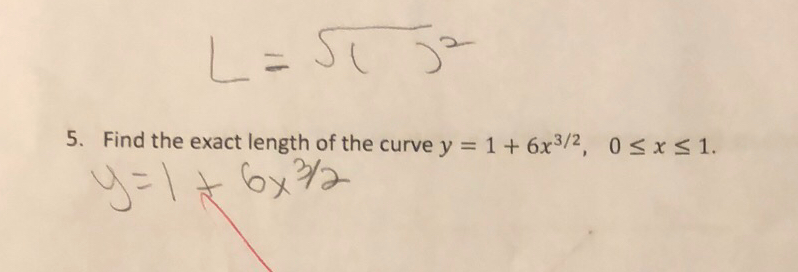 L = √( )²
5. Find the exact length of the curve y = 1 + 6x^{3/2}, 0 ≤ x ≤ 1.
y = 1 + 6x^{3/2}